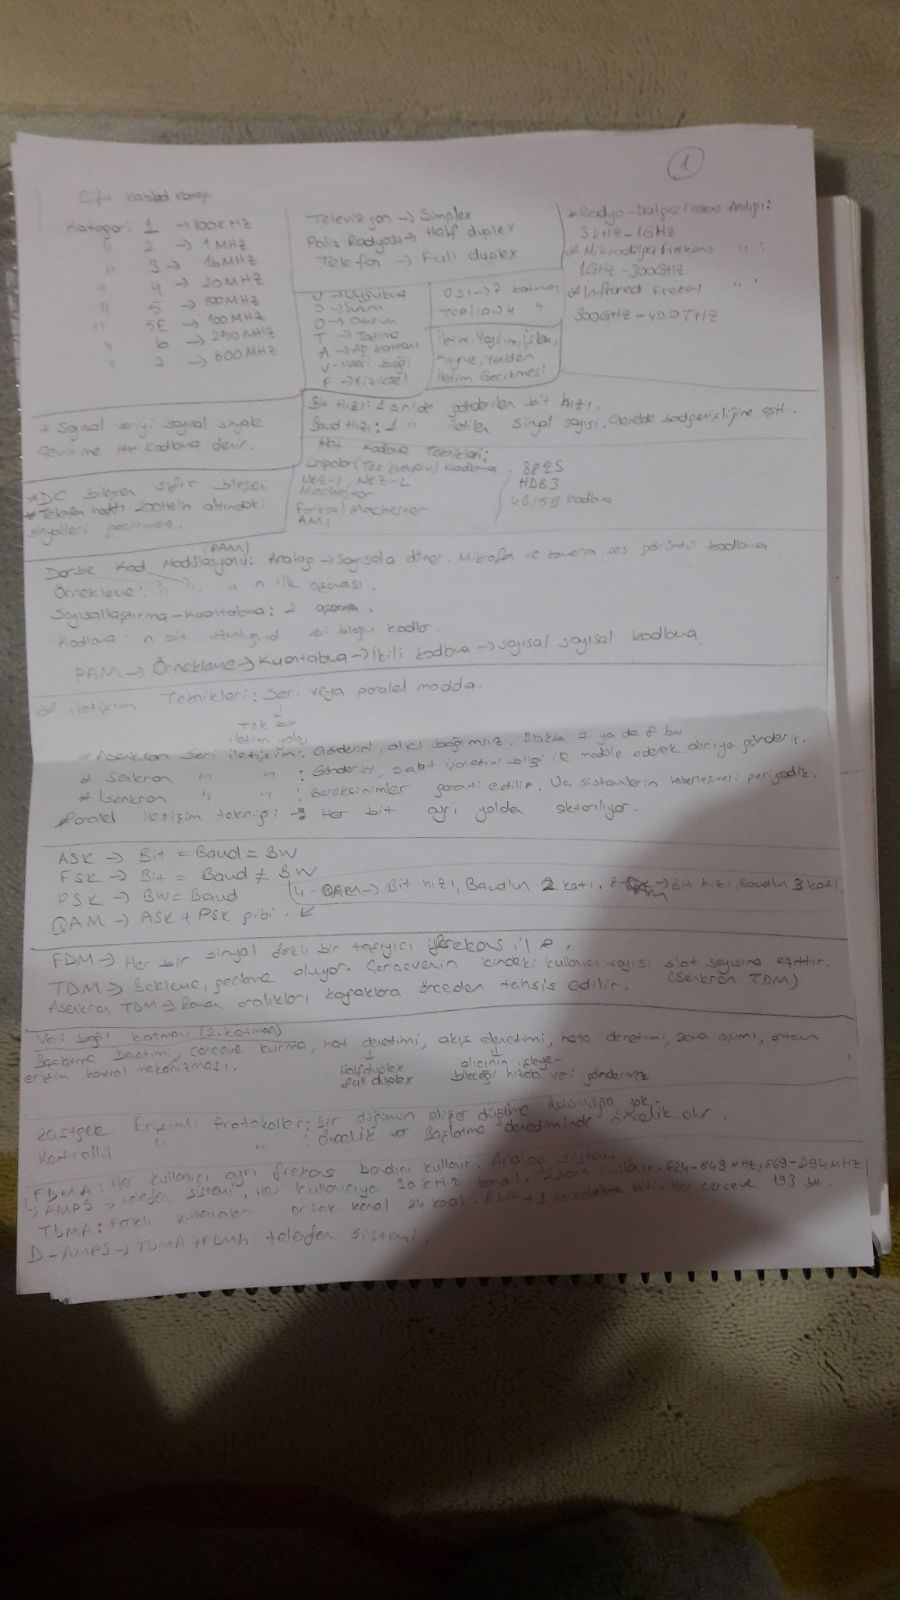 1
Çift kablod
Kategori 1 → 100kHZ
" 2 → 1MHZ
" 3 → 16MHZ
" 4 → 20MHZ
" 5 → 100MHZ
" 5E → 100MHZ
" 6 → 250MHZ
" 7 → 600MHZ
Televizyon → Simplex
Polis Radyosu → Half duplex
Telefon → Full duplex
* Radyo-Dalga Frekans Aralığı:
3kHZ-1GHZ
* Mikrodalga frekans " " :
1GHZ-300GHZ
* Infrared Frekans " " :
300GHZ-400THZ
U → Uygulama
S → Sunum
O → Oturum
T → Taşıma
A → Ağ katmanı
V → Veri bağı
F → Fiziksel
OSI → 7 katman
TCP/IP → 4 "
İletim, Yayılım, İşlem,
Kuyruk, Yeniden
iletim Gecikmesi
* Sayısal veriyi sayısal sinyale
çevirme Hat kodlama denir.
Bit Hızı: 1 sn'de gönderilen bit hızı.
Baud Hızı: 1 " iletilen sinyal sayısı, genelde bandgenişliğine eşit.
* DC bileşen sıfır bileşen
* Telefon hattı 200Hz'in altındaki
sinyalleri geçirmez.
Hat Kodlama Teknikleri:
Unipolar (Tek kutuplu) Kodlama
NRZ-I, NRZ-L
Manchester
Farksal Manchester
AMI
B8ZS
HDB3
4B/5B kodlama
(PAM)
Darbe Kod Modülasyonu: Analog → Sayısala döner. Mikrofon ve kamera ses görüntü kodlama
Örnekleme: " " " n ilk aşaması.
Sayısallaştırma - Kuantalama: 2. aşama.
Kodlama: n bit uzunluğunda veri bloğu kodlar.
PAM → Örnekleme → Kuantalama → ikili kodlama → sayısal sayısal kodlama
* iletişim Teknikleri: Seri veya paralel modda.
Tek bir
iletim yolu
* Asenkron Seri iletişim: Gönderici, alıcı bağımsız. Blokta 7 ya da 8 bit
* Senkron " " : Gönderici, saat işaretini bilgi ile modüle ederek alıcıya gönderir.
* İsenkron " " : Gereksinimler garanti edilir. Uç sistemlerin haberleşmesi periyodik.
Paralel iletişim tekniği → Her bit ayrı yolda aktarılıyor.
ASK → Bit = Baud = BW
FSK → Bit = Baud ≠ BW
PSK → BW = Baud
QAM → ASK + PSK gibi.
4-QAM → Bit hızı, Baud'un 2 katı. 8-QAM → Bit hızı, Baud'un 3 katı.
FDM → Her bir sinyal farklı bir taşıyıcı frekans ile.
TDM → Bekleme, gecikme oluyor. Çerçevenin içindeki kullanıcı sayısı slot sayısına eşittir.
(Senkron TDM)
Asenkron TDM → Zaman aralıkları kaynaklara önceden tahsis edilir.
Veri bağı katmanı (2. katman)
Başlatma Denetimi, çerçeve kurma, hat denetimi, akış denetimi, hata denetimi, zaman aşımı, ortam
erişim kontrol mekanizması.
Half duplex
full duplex
alıcının işleye-
bileceği hızda veri göndermez
Rastgele Erişimli Protokoller: Bir düğümün diğer düğüme üstünlüğü yok.
Kontrollü " " : Öncelik var. Başlatma denetiminde öncelik alır.
FDMA: Her kullanıcı ayrı frekans bandını kullanır. Analog sistem
↳ AMPS → telefon sistemi. Her kullanıcıya 30kHZ kanal. 824-849MHZ, 869-894MHZ
TDMA: Farklı kullanıcılar ortak kanal. 24 kanal. 8 bit + 1 Her çerçeve 193 bit.
D-AMPS → TDMA + FDMA telefon sistemi.